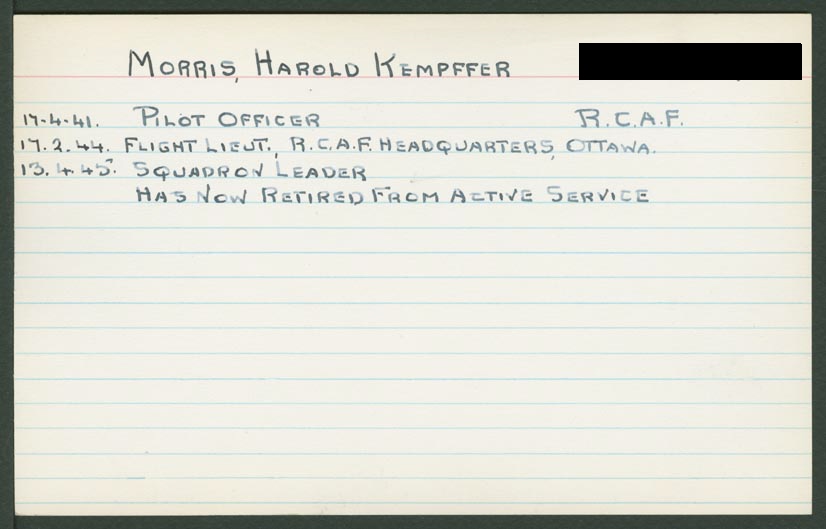 MORRIS, HAROLD KEMPFFER
17-4-41. PILOT OFFICER R.C.A.F.
17.2.44. FLIGHT LIEUT., R.C.A.F. HEADQUARTERS, OTTAWA.
13.4.45. SQUADRON LEADER
HAS NOW RETIRED FROM ACTIVE SERVICE